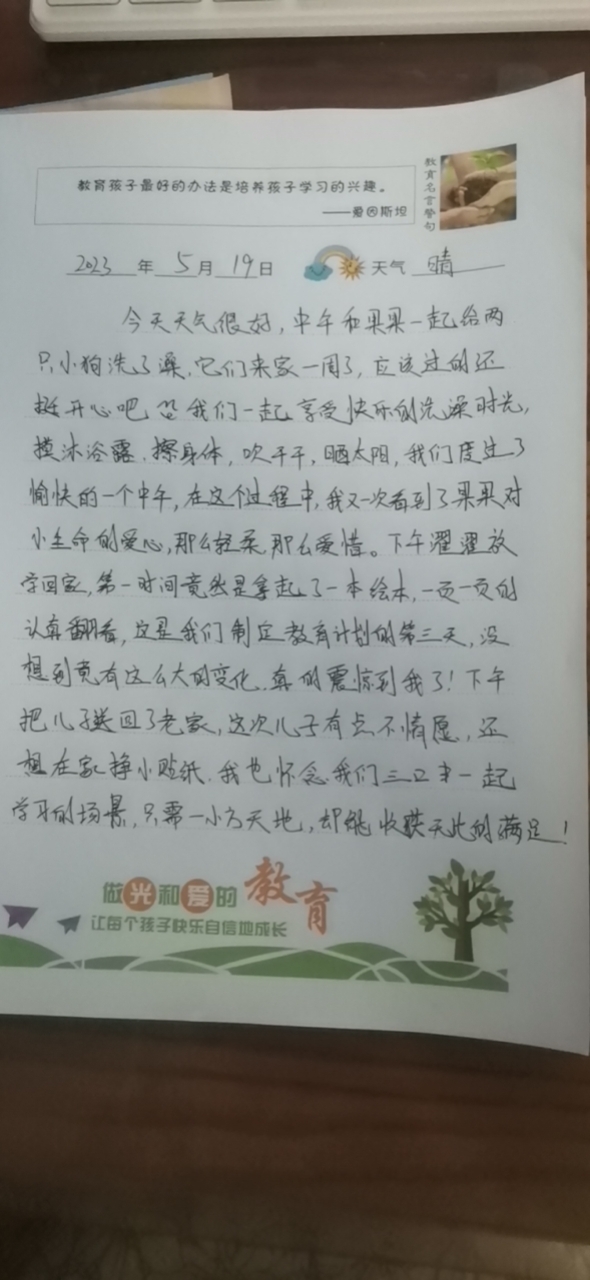 教育孩子最好的办法是培养孩子学习的兴趣。
——爱因斯坦
教育名言警句
2023年5月19日 天气 晴
今天天气很好，中午和果果一起给两
只小狗洗了澡，它们来家一周了，应该过的还
挺开心吧，我们一起享受快乐的洗澡时光，
摸沐浴露、擦身体，吹干干，晒太阳，我们度过了
愉快的一个中午，在这个过程中，我又一次看到了果果对
小生命的爱心，那么轻柔，那么爱惜。下午濯濯放
学回家，第一时间竟然是拿起了一本绘本，一页一页的
认真翻看，这是我们制定教育计划的第三天，没
想到竟有这么大的变化，真的震惊到我了！下午
把儿子送回了老家，这次儿子有点不情愿，还
想在家挣小贴纸，我也怀念我们三口才一起
学习的场景，只需一小方天地，却能收获无比的满足！
做光和爱的教育
让每个孩子快乐自信地成长